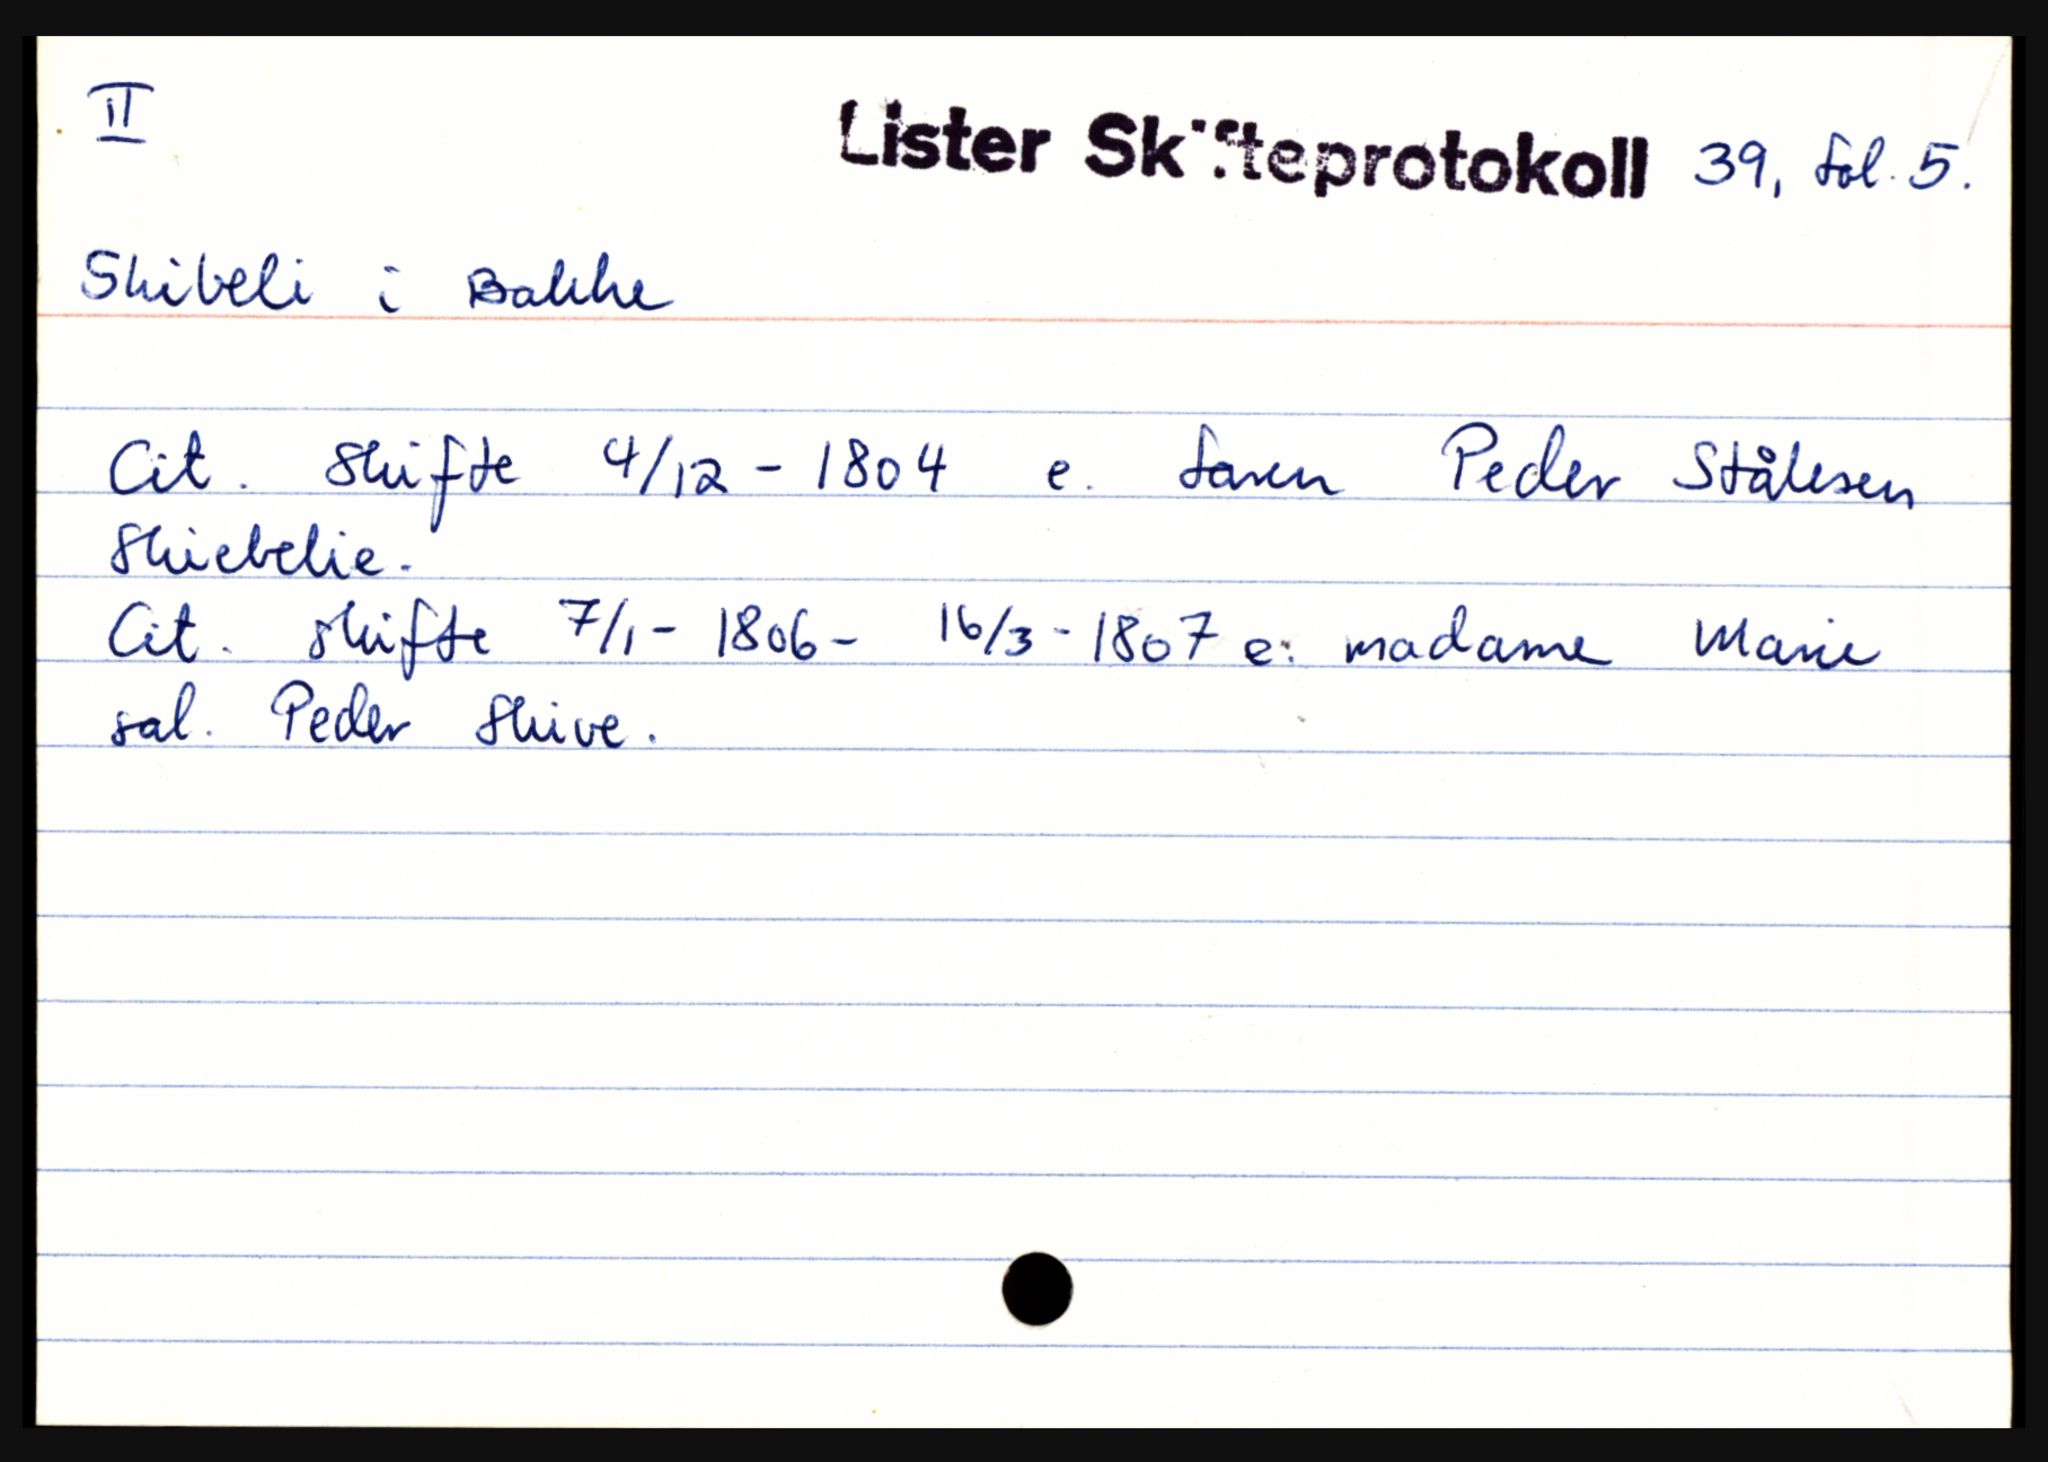 II
Lister Skifteprotokoll 39, fol. 5.
Skibeli i Bakke
Cit. skifte 4/12 - 1804 e. faren Peder Stålesen
Skiebelie.
Cit. skifte 7/1 - 1806 - 16/3 - 1807 e. madame Marie
sal. Peder Skive.